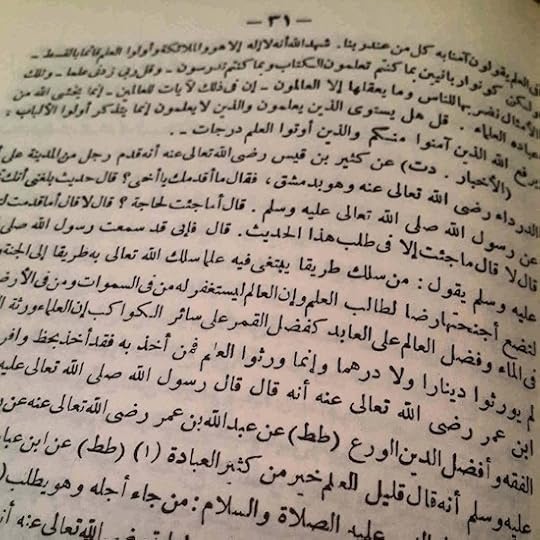 — ٣١ —
فى العلم يقولون آمنا به كل من عند ربنا . شهد الله أنه لا إله إلا هو والملائكة وأولوا العلم قائما بالقسط -
ولكن كونوا ربانيين بما كنتم تعلمون الكتاب وبما كنتم تدرسون - وقل ربى زدنى علما - وتلك
الأمثال نضربها للناس وما يعقلها إلا العالمون - إن فى ذلك لآيات للعالمين - إنما يخشى الله من
عباده العلماء . قل هل يستوى الذين يعلمون والذين لا يعلمون إنما يتذكر أولوا الألباب .
يرفع الله الذين آمنوا منكم والذين أوتوا العلم درجات - .
(الأخبار . دت) عن كثير بن قيس رضى الله تعالى عنه أنه قدم رجل من المدينة على
الدرداء رضى الله تعالى عنه وهو بدمشق ، فقال ما أقدمك يا أخى ؟ قال حديث بلغنى أنك
عن رسول الله صلى الله تعالى عليه وسلم . قال أما جئت لحاجة ؟ قال لا قال أما قدمت
قال لا قال ما جئت إلا فى طلب هذا الحديث . قال فإنى قد سمعت رسول الله صلى
عليه وسلم يقول : من سلك طريقا يبتغى فيه علما سلك الله تعالى به طريقا إلى الجنة
لتضع أجنحتها رضا لطالب العلم وإن العالم ليستغفر له من فى السموات ومن فى الأرض
فى الماء وفضل العالم على العابد كفضل القمر على سائر الكواكب إن العلماء ورثة
لم يورثوا دينارا ولا درهما وإنما ورثوا العلم فمن أخذ به فقد أخذ بحظ وافر
ابن عمر رضى الله تعالى عنه أنه قال قال رسول الله صلى الله تعالى عليه
الفقه وأفضل الدين الورع (طط) عن عبد الله بن عمر رضى الله تعالى عنه عن
عليه وسلم أنه قال قليل العلم خير من كثير العبادة (١) (طط) عن ابن عباس
عليه الصلاة والسلام : من جاء أجله وهو يطلب